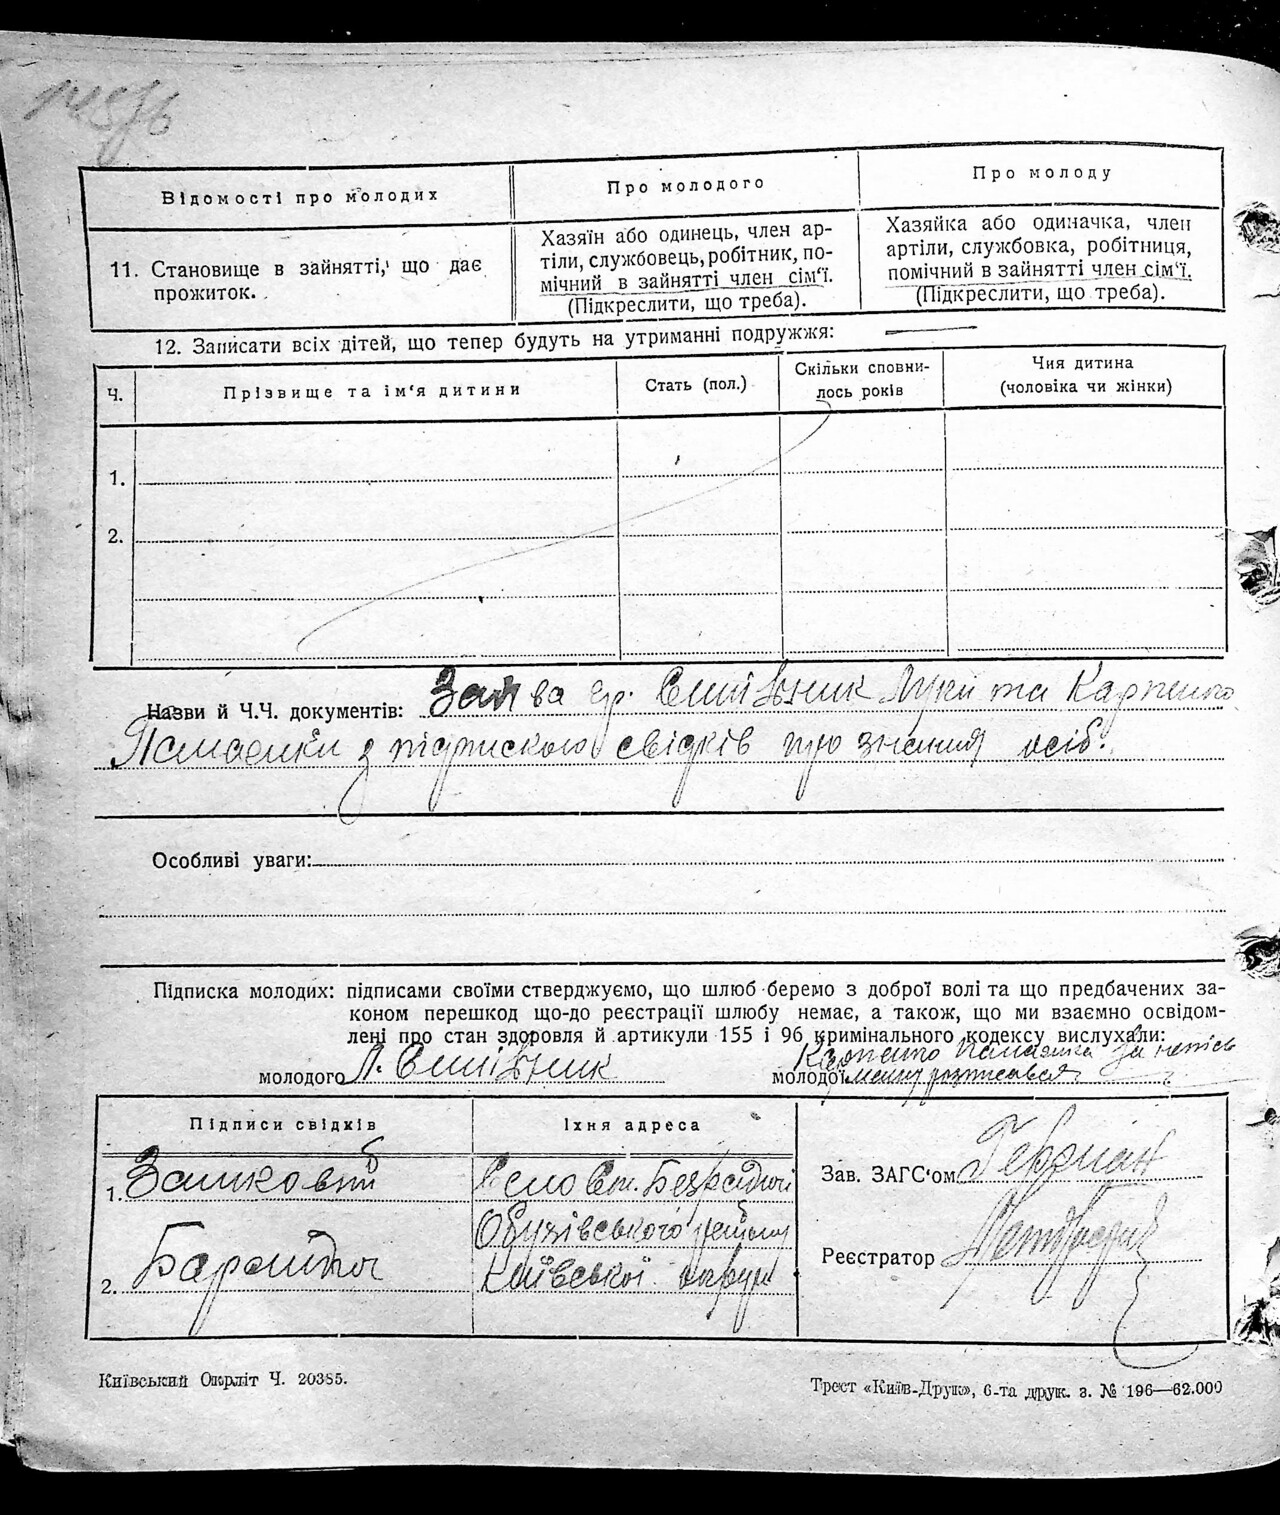 Відомості про молодих
Про молодого
Про молоду
11. Становище в зайнятті, що дає
прожиток.
Хазяїн або одинець, член ар-
тілі, службовець, робітник, по-
мічний в зайнятті член сім'ї.
(Підкреслити, що треба).
Хазяйка або одиначка, член
артіли, службовка, робітниця,
помічний в зайнятті член сім'ї.
(Підкреслити, що треба).
12. Записати всіх дітей, що тепер будуть на утриманні подружжя: —
Ч.
Прізвище та ім'я дитини
Стать (пол.)
Скільки сповни-
лось років
Чия дитина
(чоловіка чи жінки)
1.
2.
Назви й Ч.Ч. документів: Заява гр. Луки та Карпенко
з підпискою свідків про знання осіб.
Особливі уваги:
Підписка молодих: підписами своїми стверджуємо, що шлюб беремо з доброї волі та що предбачених за-
коном перешкод що-до реєстрації шлюбу немає, а також, що ми взаємно освідом-
лені про стан здоровля й артикули 155 і 96 кримінального кодексу вислухали:
молодого Л.
Карпенко за непись
молодої менну розписався
Підписи свідків
Їхня адреса
1.
Село Ст. Безрадичі
Обухівського району
2.
Київської округи
Зав. ЗАГС'ом
Реєстратор
Київський Окрліт Ч. 20385.
Трест «Київ-Друк», 6-та друк. з. № 196—62.000